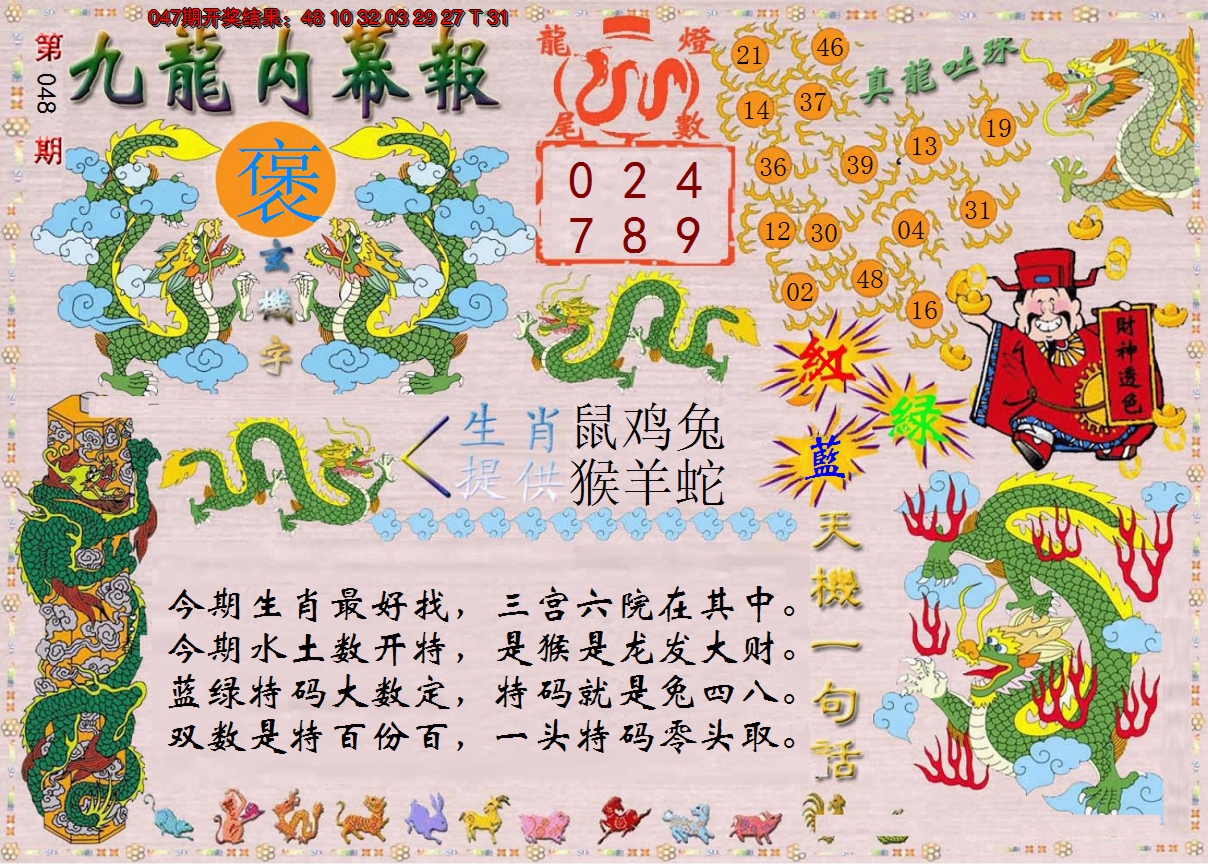 047期开奖结果：48 10 32 03 29 27 T 31
第048期
九龍内幕報
褒
玄機字
龍燈
尾數
0 2 4
7 8 9
真龍吐珠
21 46
14 37
36 39 13 19
12 30 04 31
02 48 16
財神透色
紅
绿
藍
生肖 鼠鸡兔
提供 猴羊蛇
天機一句話
今期生肖最好找，三宫六院在其中。
今期水土数开特，是猴是龙发大财。
蓝绿特码大数定，特码就是兔四八。
双数是特百份百，一头特码零头取。